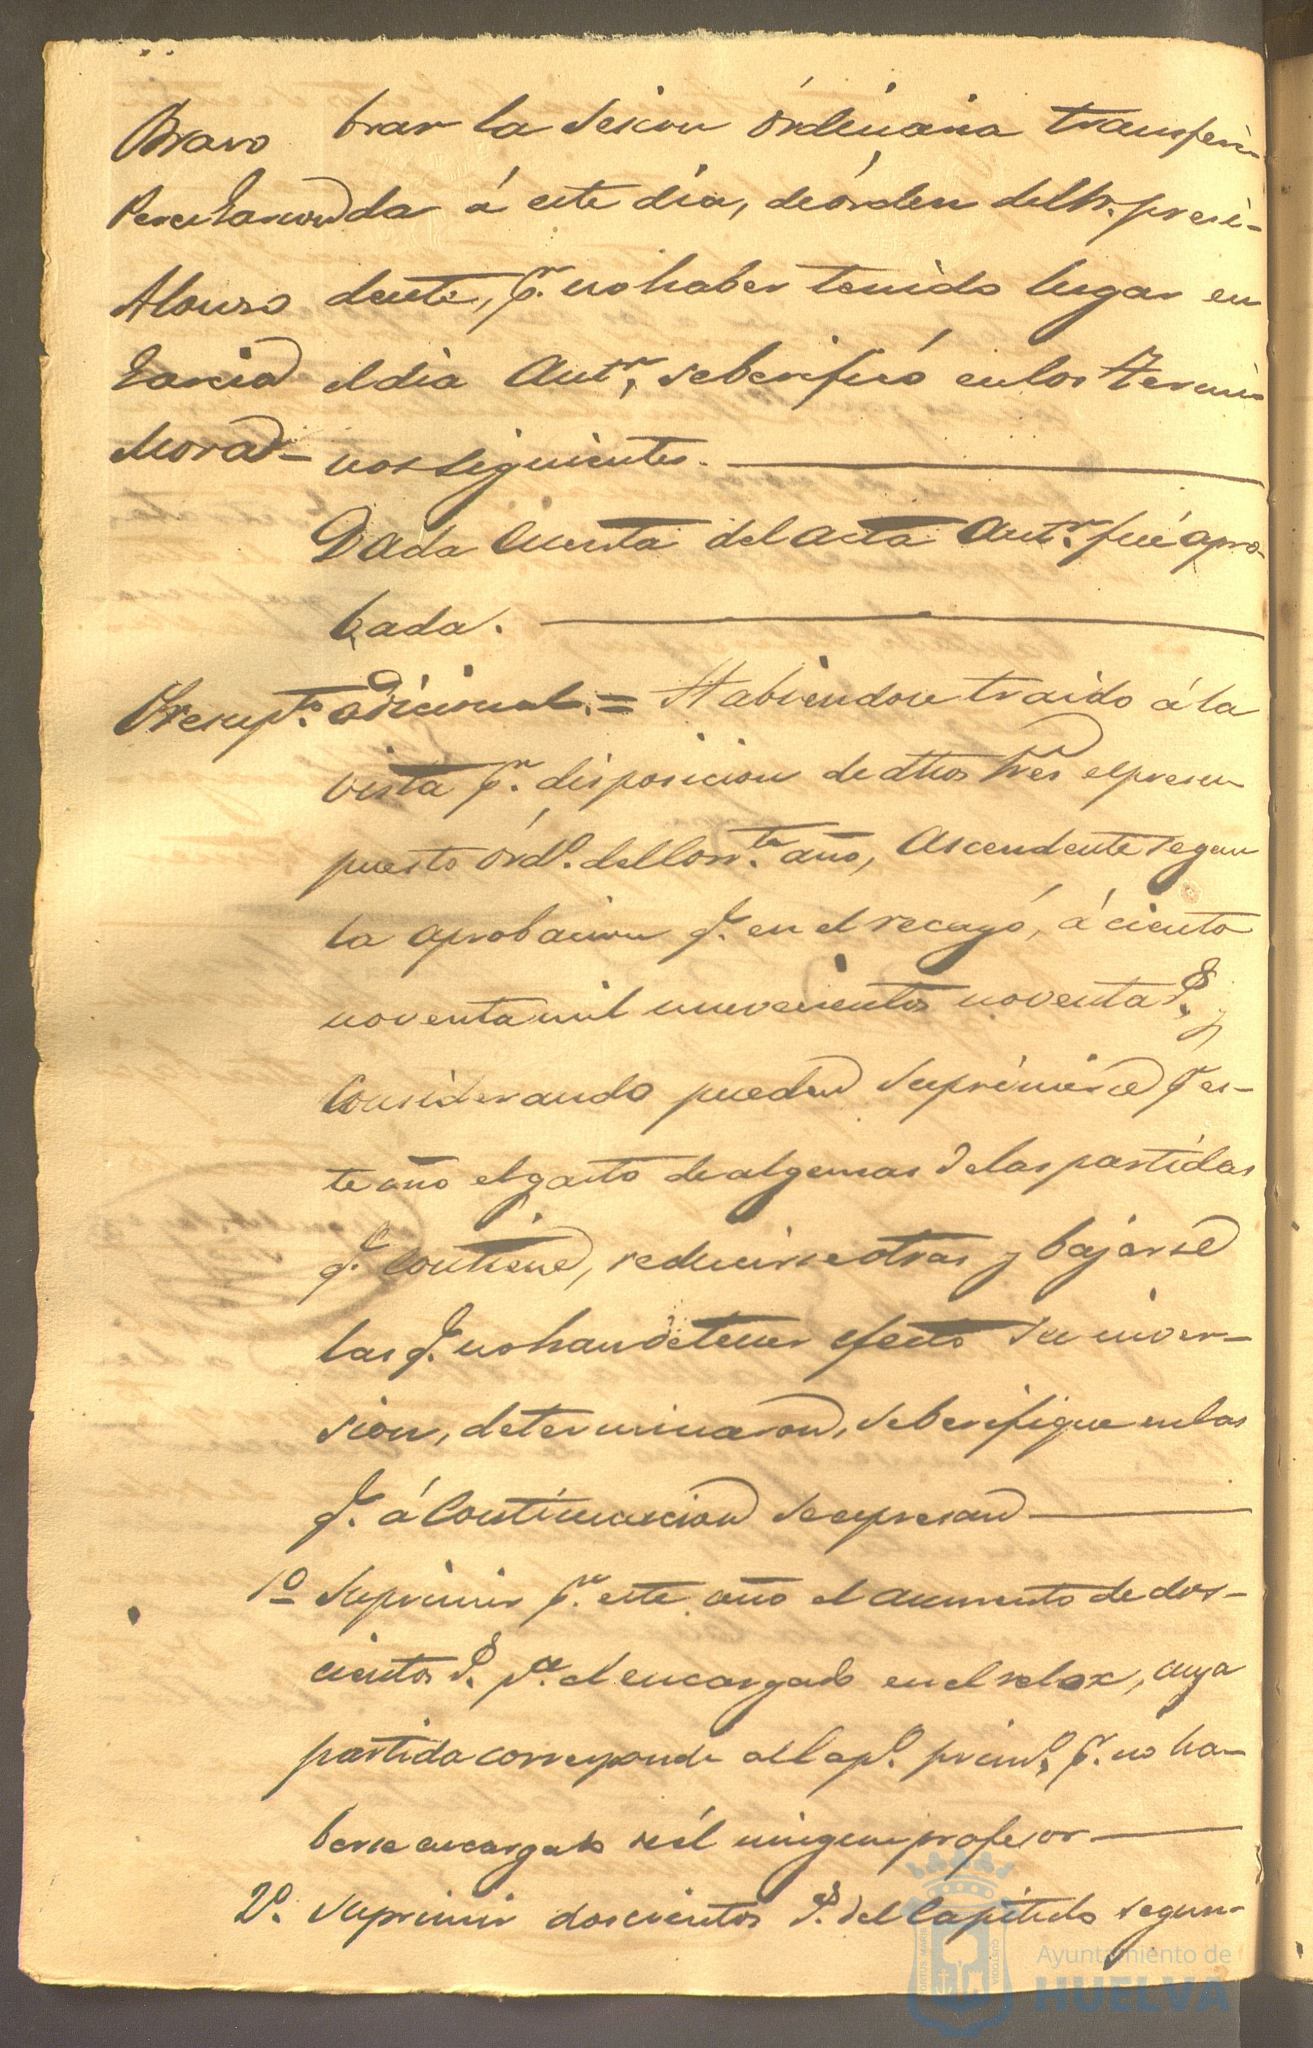 Bravo brar la sesion órdinaria transferi-
Perez Garcia da á este dia, de órden del Sr. presi-
Alonso dente, pr. no haber tenido lugar en
Garcia el dia Antr., se berificó en los termi-
Mora = nos siguientes.
Dada Cuenta del acta Antr. fué apro-
bada.
Presupto. adicional. = Habiendose traido á la
vista pr. disposicion de dhos Sres el presu
puesto órdo. del Corrte. año, Ascendente segun
la aprobacion qe. en el recayó, á ciento
noventa mil nuevecientos noventa Rs. y
Considerando pueden Suprimirse pr es-
te año el gasto de algunas de las partidas
qe. Contiene, reducirse otras y bajarse
las qe. no han de tener efecto su inver-
sion, determinaron, se berifique en las
qe. á Continuacion se expresan
1o Suprimir pr. este año el aumento de dos-
cientos Rs. pa. el encargado en el relox, cuya
partida corresponde al Capo. primo. pr. no ha-
berse encargado de él ningun profesor
2o. Suprimir doscientos Rs. del Capitulo segun-
Ayuntamiento de
HUELVA